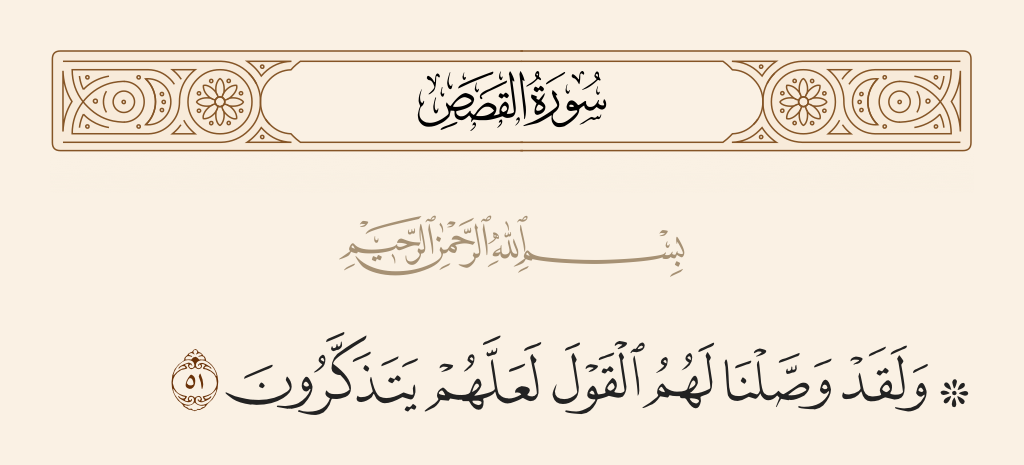 سُورَةُ القَصَصِ
بِسْمِ ٱللَّهِ ٱلرَّحْمَٰنِ ٱلرَّحِيمِ
۞ وَلَقَدْ وَصَّلْنَا لَهُمُ ٱلْقَوْلَ لَعَلَّهُمْ يَتَذَكَّرُونَ ٥١